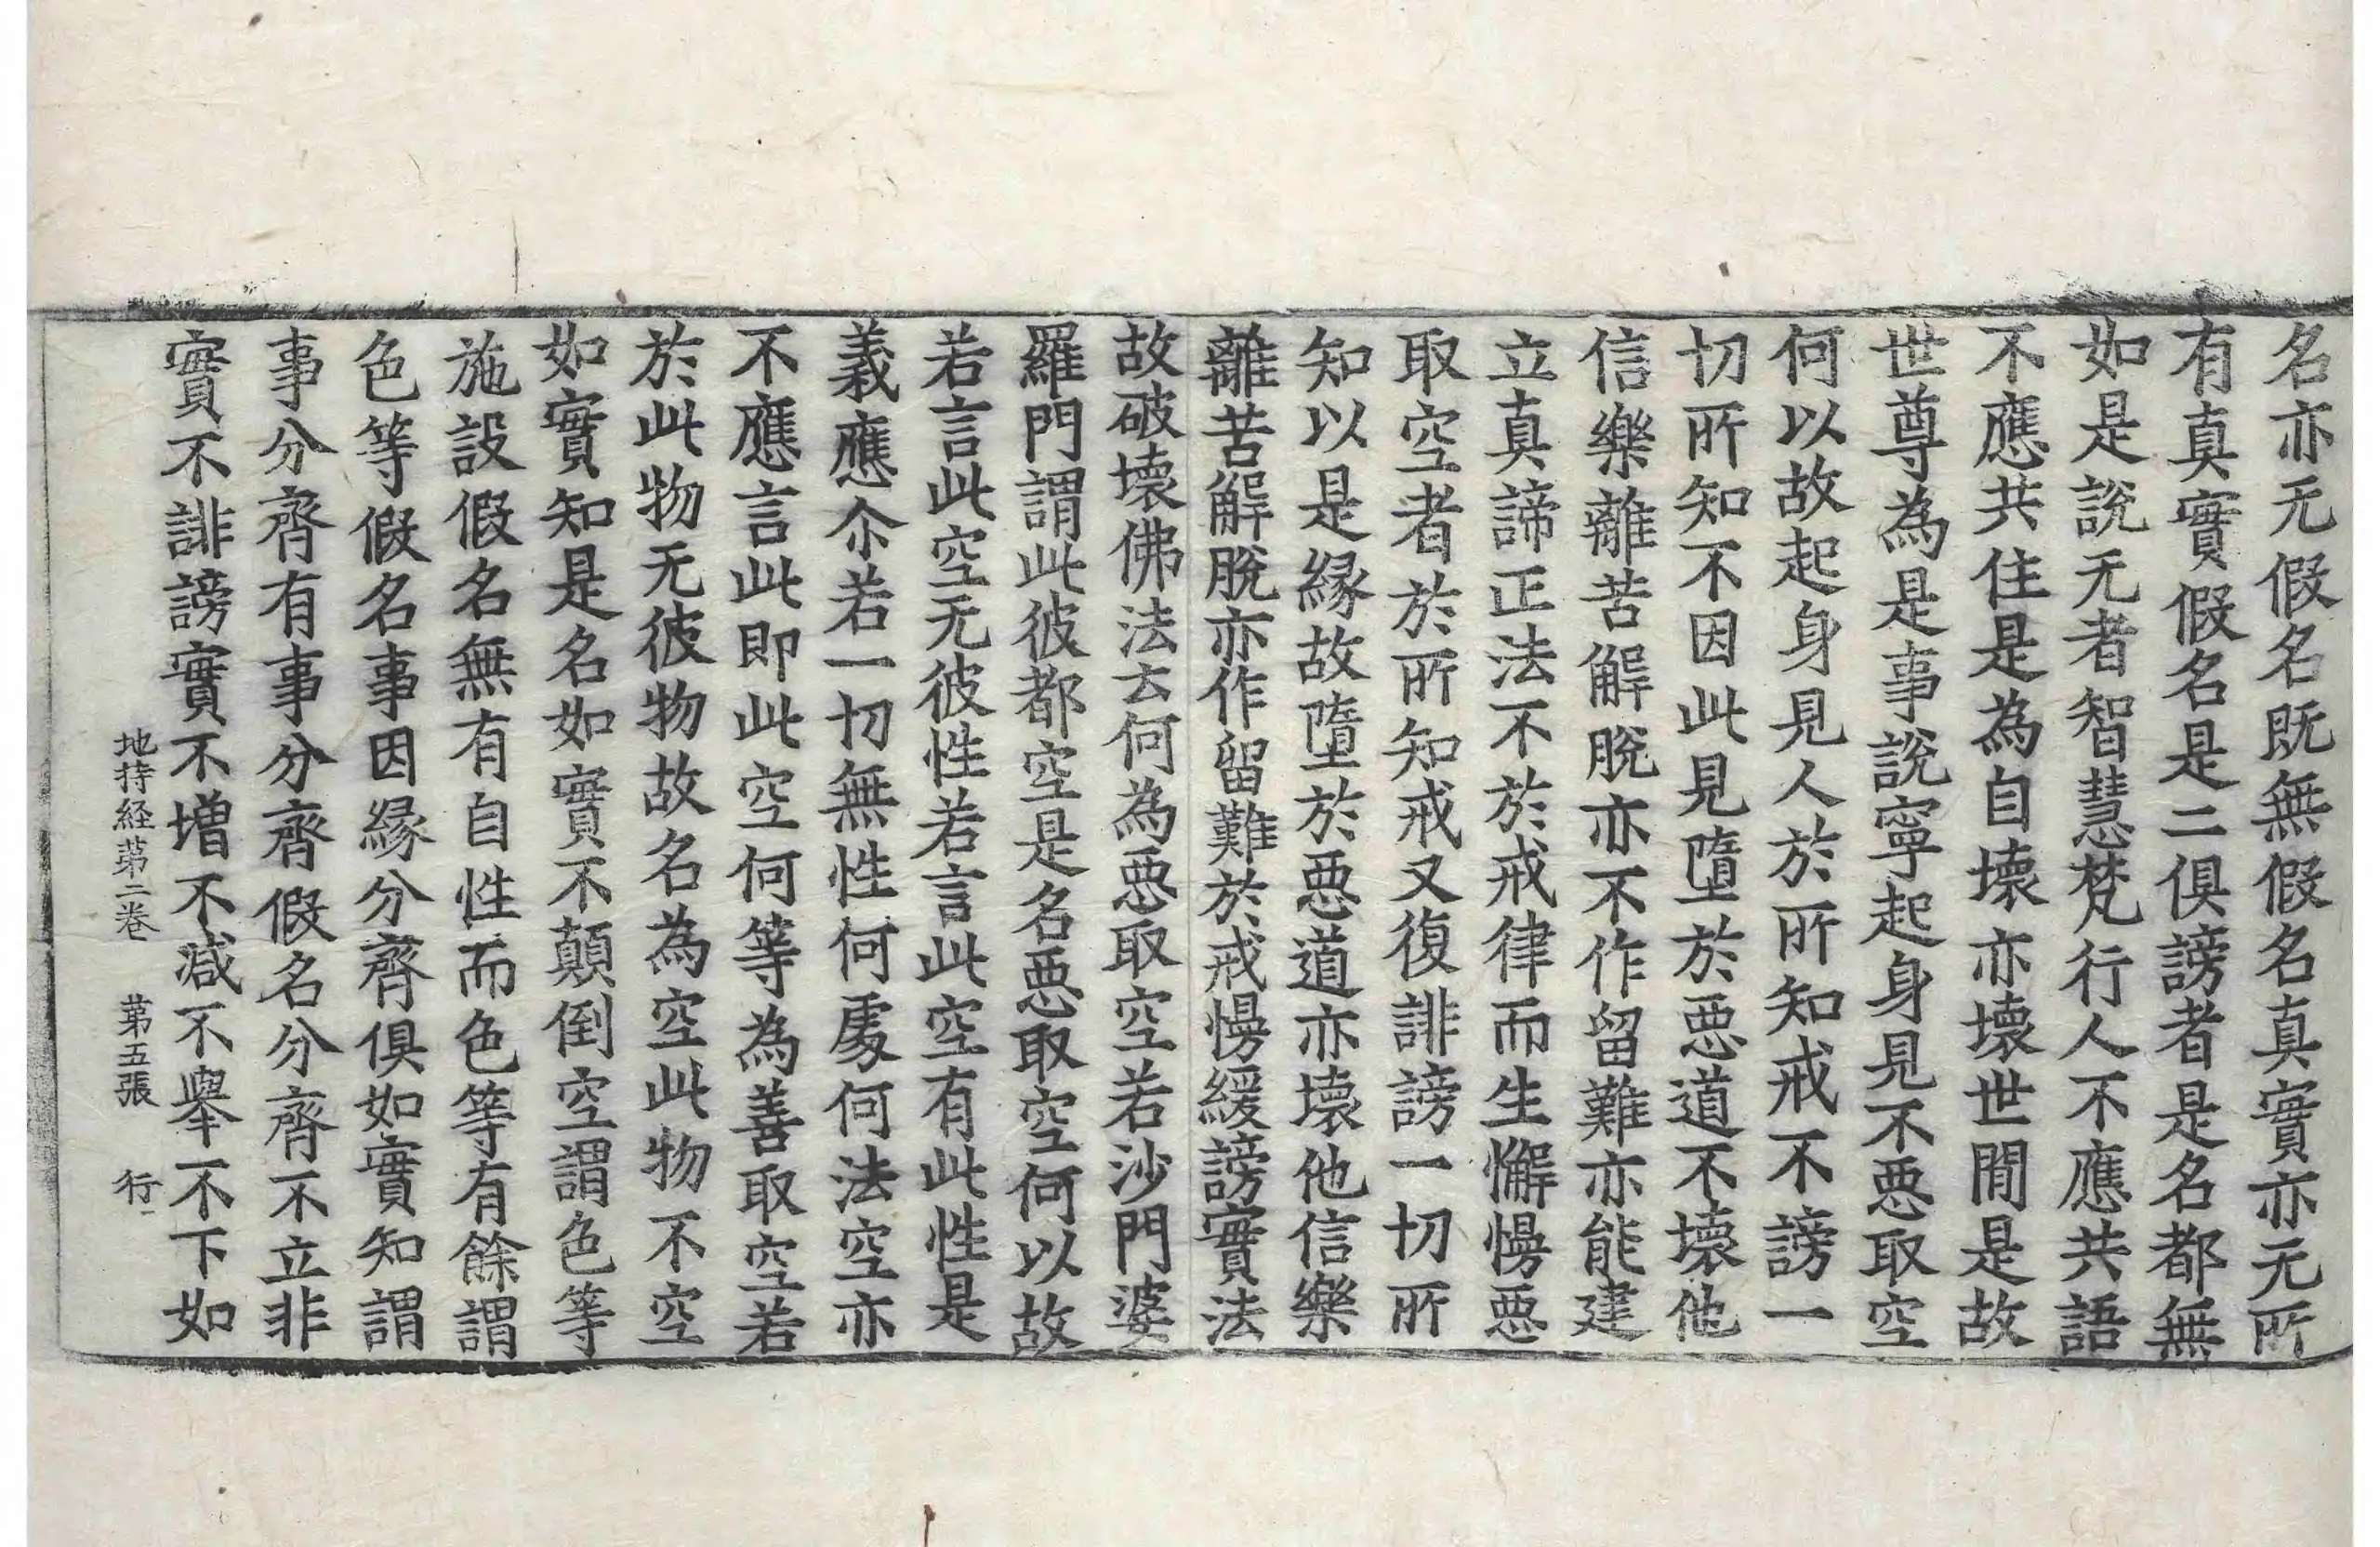 名亦无假名既無假名真實亦无所
有真實假名是二俱謗者是名都無
如是說无者智慧梵行人不應共語
不應共住是為自壞亦壞世間是故
世尊為是事說寧起身見不惡取空
何以故起身見人於所知戒不謗一
切所知不因此見墮於惡道不壞他
信樂離苦解脫亦不作留難亦能建
立真諦正法不於戒律而生懈慢惡
取空者於所知戒又復誹謗一切所
知以是緣故墮於惡道亦壞他信樂
離苦解脫亦作留難於戒慢緩謗實法
故破壞佛法云何為惡取空若沙門婆
羅門謂此彼都空是名惡取空何以故
若言此空无彼性若言此空有此性是
義應尒若一切無性何處何法空亦
不應言此即此空何等為善取空若
於此物无彼物故名為空此物不空
如實知是名如實不顛倒空謂色等
施設假名無有自性而色等有餘謂
色等假名事因緣分齊俱如實知謂
事分齊有事分齊假名分齊不立非
實不誹謗實不增不減不舉不下如
地持経苐二卷 苐五張 行一